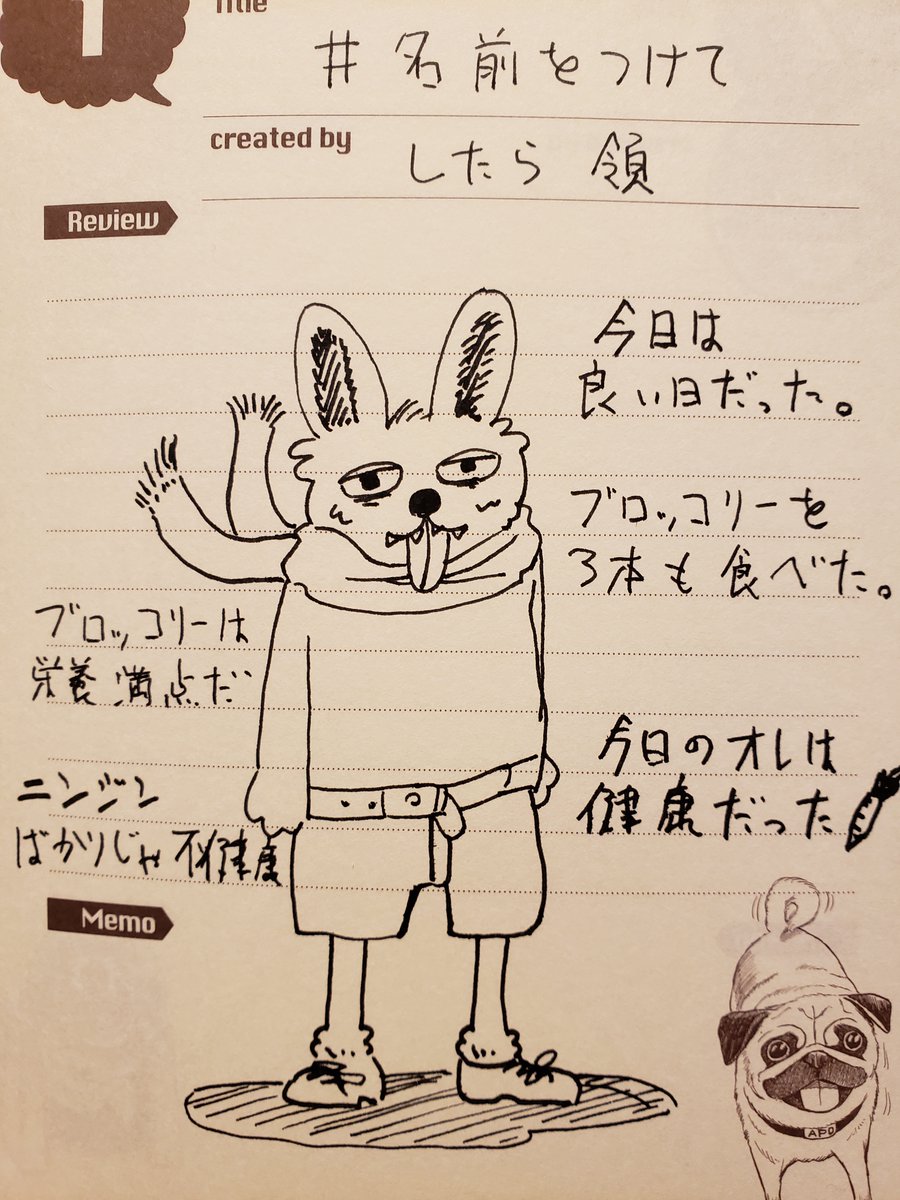 1
Title
#名前をつけて
created by
したら 領
Review
今日は
良い日だった。
ブロッコリーを
3本も食べた。
ブロッコリーは
栄養満点だ
今日のオレは
健康だった
ニンジン
ばかりじゃ不健康
Memo
APO